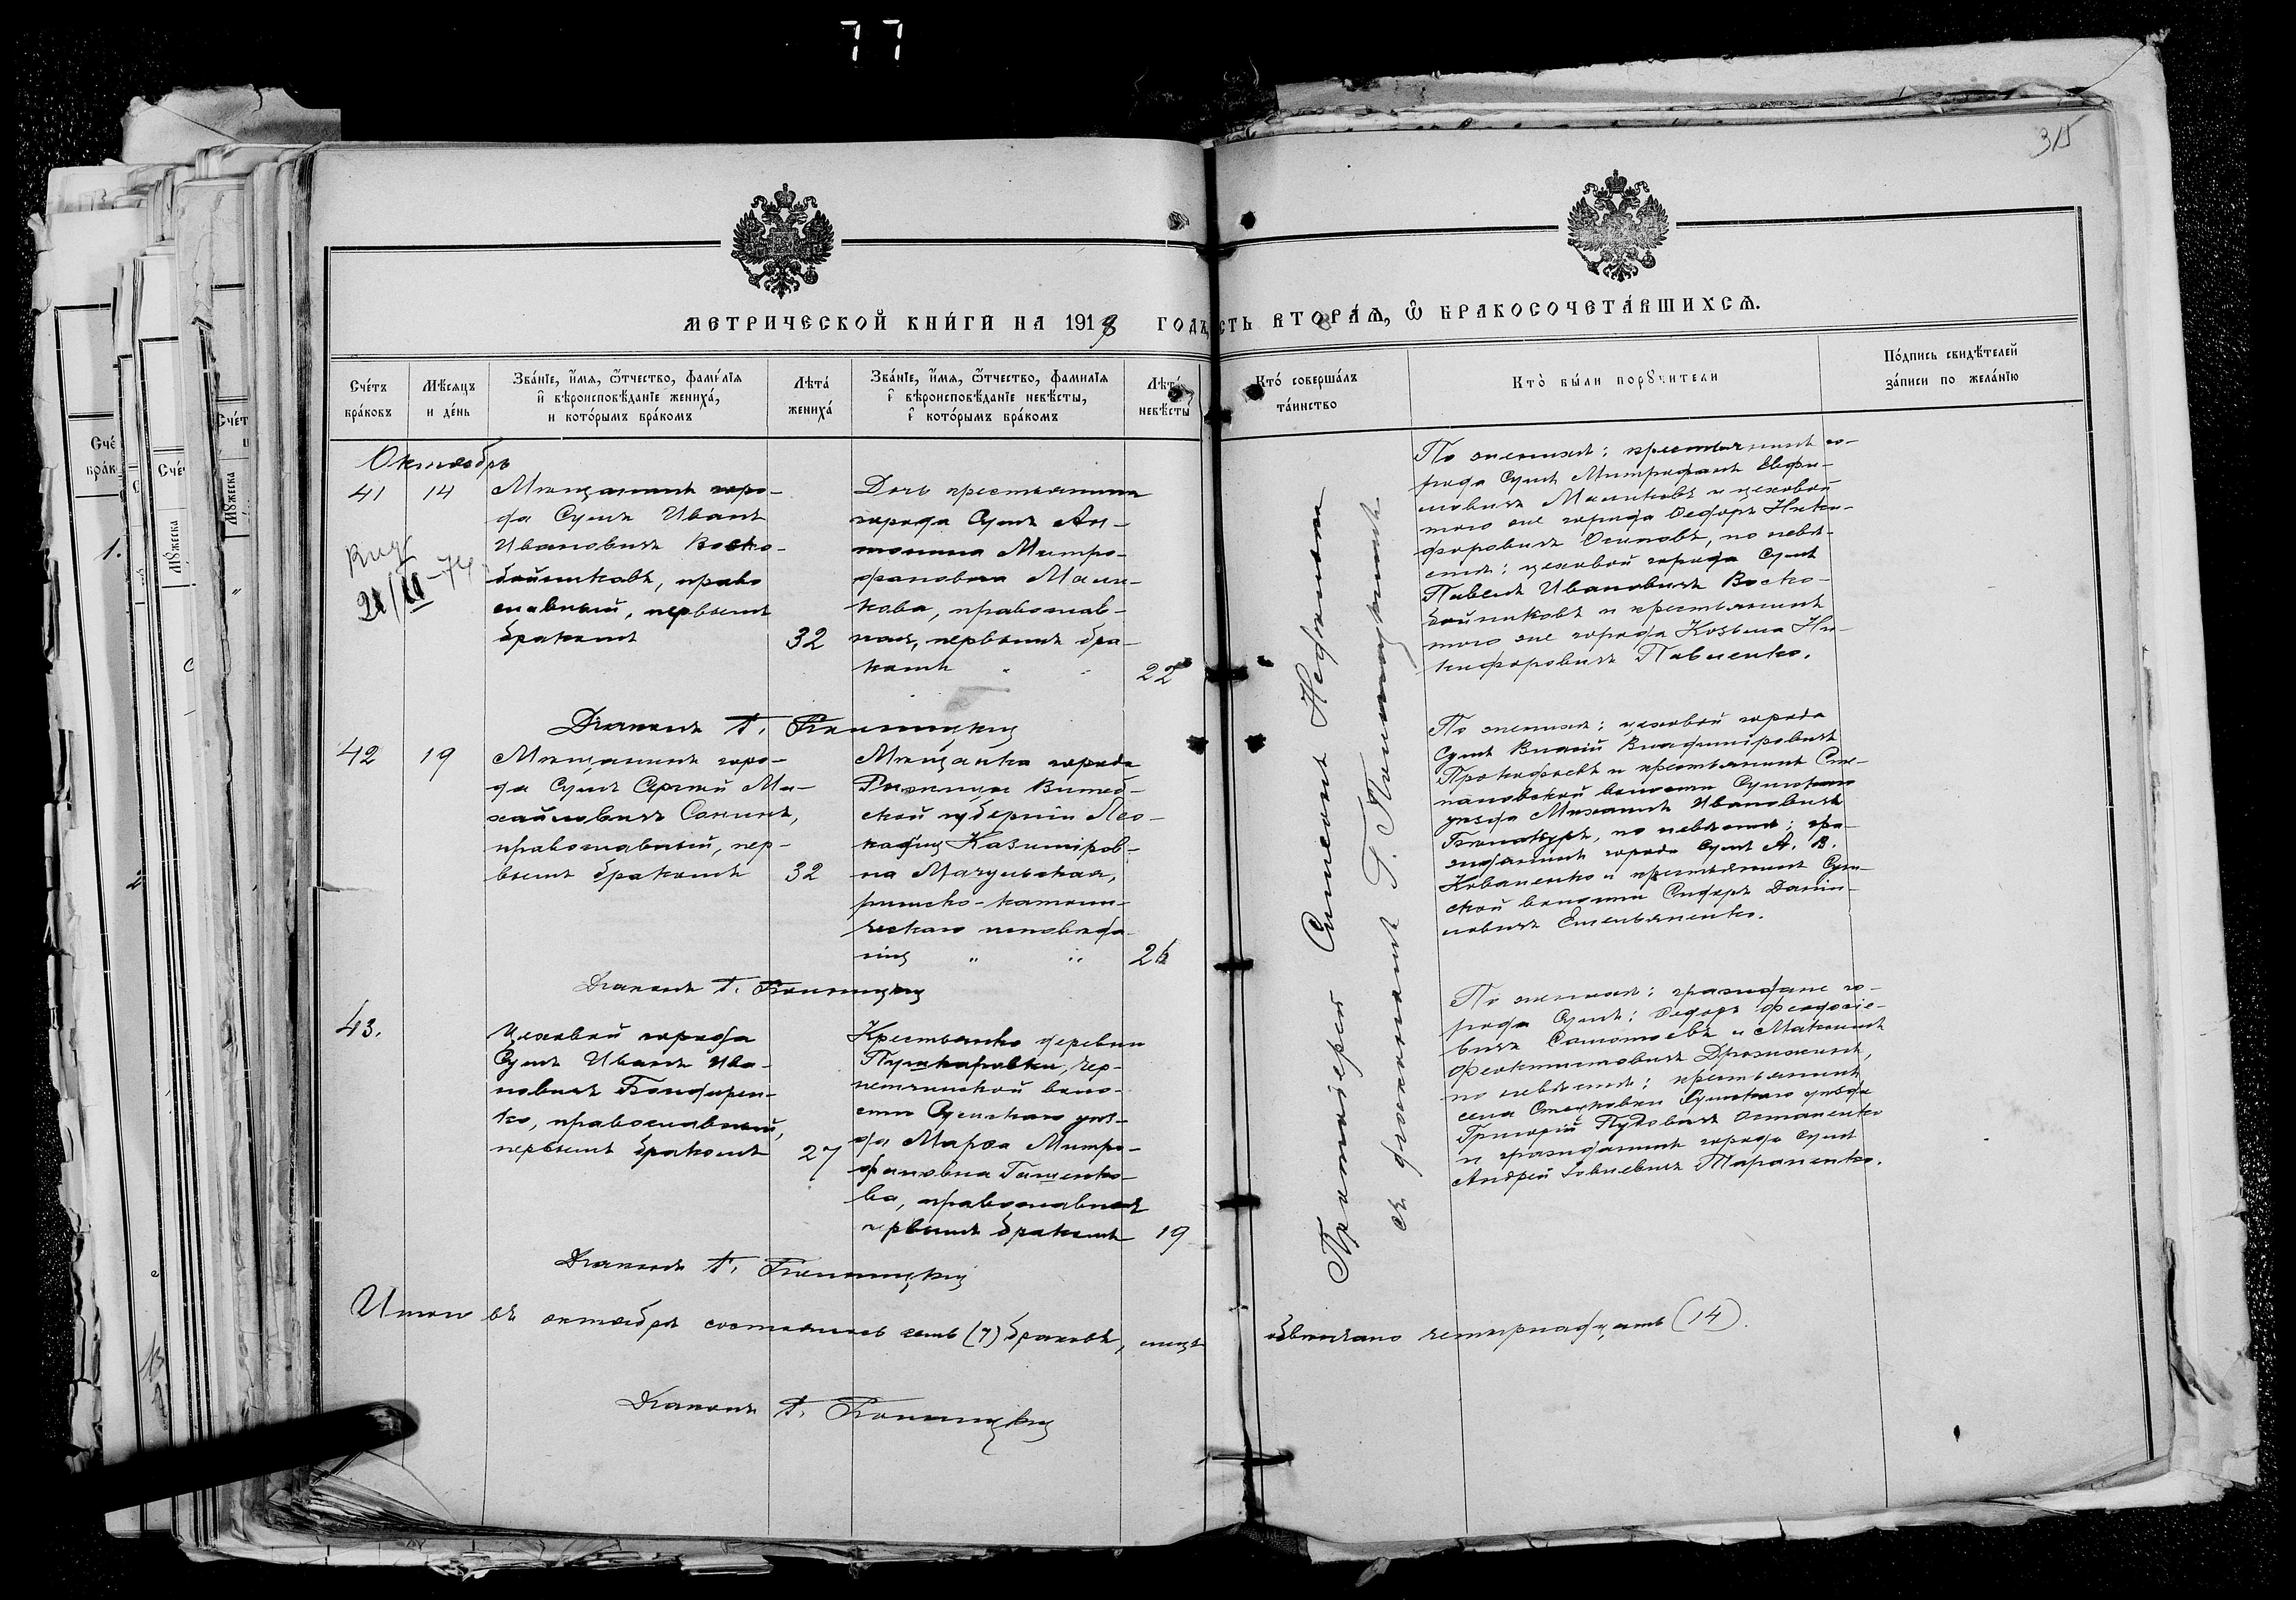 77
315
МЕТРИЧЕСКОЙ КНИ́ГИ НА 1918 ГОДЪ,
СТЬ ВТОРА́Я, Ѽ БРАКОСОЧЕТА́ВШИХСЯ.
Сче́тъ бра́ковъ
Мѣ́сяцъ и де́нь
Зва́нїе, и҆́мя, ѻ҆́тчество, фами́лїя
и҆ вѣроисповѣ́данїе жениха́,
и кото́рымъ бра́комъ
Лѣта́ жениха́
Зва́нїе, и҆́мя, ѻ҆́тчество, фамилїя
и҆ вѣроисповѣ́данїе невѣ́сты,
и҆ кото́рымъ бра́комъ
Лѣта́ невѣ́сты
Кто́ соверша́лъ та́инство
Кто̀ бы́ли порꙋчи́тели
По́дпись свидѣ́телей
за́писи по жела́нїю
Октябрь
41
14
Мѣщанинъ горо-
да Сумъ Иванъ
Ивановичъ Воско-
бойниковъ, право
славный, первымъ
бракомъ
32
Дочь крестьянина
города Сумъ Ан-
тонина Митро-
фановна Мали-
кова, православ-
ная, первымъ бра-
комъ
22
По женихѣ: крестьянинъ го-
рода Сумъ Митрофанъ
Маликовъ и цеховой
того же города Ѳедоръ Ники-
форовичъ Осиповъ, по невѣ-
стѣ: цеховой города Сумъ
Павелъ Ивановичъ Воско-
бойниковъ и крестьянинъ
того же города Козьма Ни-
кифоровичъ Павленко.
Діаконъ
42
19
Мѣщанинъ горо-
да Сумъ Сергѣй Ми-
хайловичъ Сонинъ,
православный, пер-
вымъ бракомъ
32
Мѣщанка города
Рѣжицы Витеб-
ской губерніи Лео-
кадия Казиміров-
на Мачульская,
римско-католи-
ческаго исповѣда
нія
По женихѣ: цеховой города
Сумъ Власій Владиміровичъ
Прокофьевъ и крестьянинъ Сте-
пановской волости Сумскаго
уѣзда Михаилъ Ивановичъ
по невѣстѣ: гра-
жданинъ города Сумъ А. В.
Коваленко и крестьянинъ Сум-
ской волости Сидоръ Даніи-
ловичъ Емельяненко.
Діаконъ
43.
Цеховой города
Сумъ Иванъ Ива-
новичъ Бондарен-
ко, православный,
первымъ бракомъ
27
Крестьянка деревни
Пушкаровки, Чер-
нетчинской воло-
сти Сумскаго уѣз-
да Марѳа Митро-
фановна Гашенко-
ва, православная
первымъ бракомъ
19
По женихѣ: граждане го-
рода Сумъ: Ѳедоръ Феодосіе-
вичъ и Максимъ
Феоктистовичъ
по невѣстѣ: крестьянинъ
села Стецковки Сумскаго уѣзда
Григорій Остапенко
и гражданинъ города Сумъ
Андрей Іовлевичъ Тараненко.
Діаконъ
Протоіерей Симеонъ
съ діакономъ
Итого въ октябрѣ состоялось семь (7) браковъ, лицъ
обвѣнчано четырнадцать (14).
Діаконъ